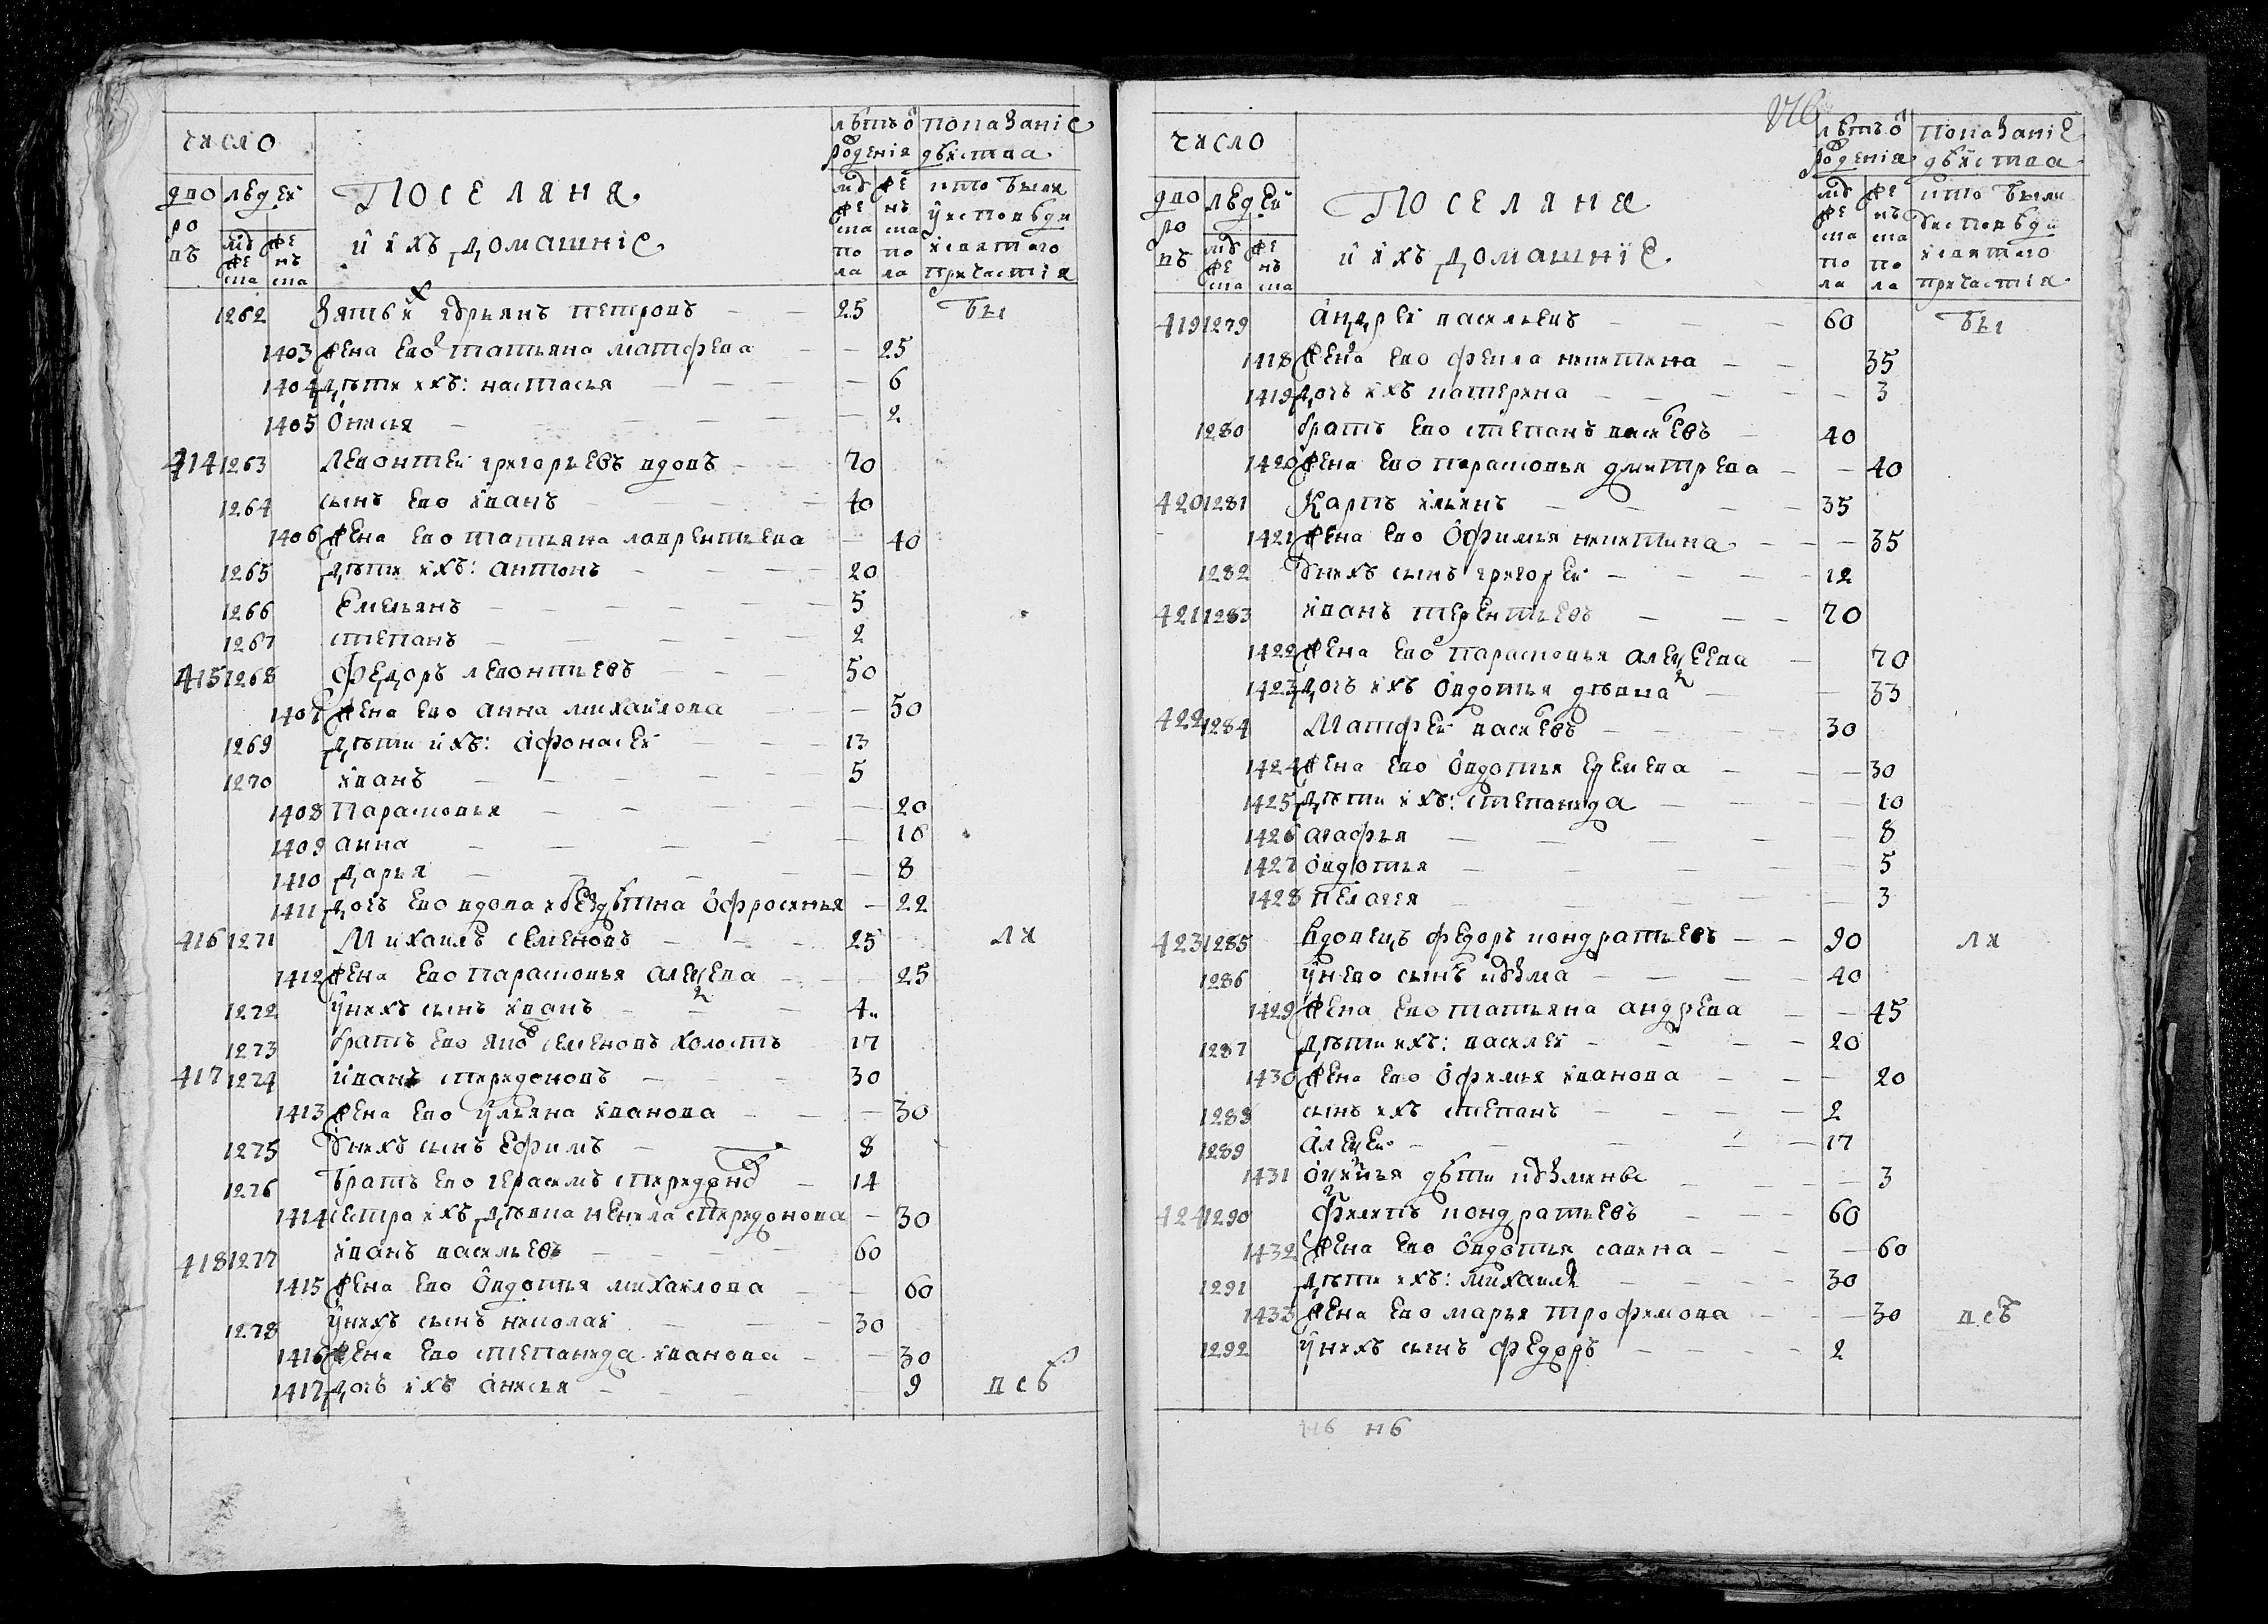 число
лѣтъ ѿ роденія
показаніе дѣйства
дворовъ
людей
Поселяня
и ихъ домашніе
мужеска
женска
мужеска пола
женска пола
кто были у исповѣди и святаго причастія
1262 Зять ихъ ядрьянъ петровъ 25 бы
1403 жена ево татьяна матфева 25
1404 дѣти ихъ: настасья 6
1405 Онисья 2
414 1263 Левонтей григорьевъ вдовъ 70
1264 сынъ ево иванъ 40
1406 жена ево татьяна лаврентьева 40
1265 дѣти ихъ: антонъ 20
1266 Емельянъ 5
1267 степанъ 2
415 1268 федоръ левонтьевъ 50
1407 жена ево анна михайлова 50
1269 дѣти ихъ: афонасей 13
1270 иванъ 5
1408 Парасковья 20
1409 анна 10
1410 дарья 8
1411 дочь ево вдова и бездѣтна Офросинья 22
416 1271 Михаилъ семеновъ 25 ли
1412 жена ево парасковья алексева 25
1272 у нихъ сынъ иванъ 4
1273 братъ ево яковъ семеновъ холостъ 17
417 1274 иванъ спиридоновъ 30
1413 жена ево ульяна иванова 30
1275 у нихъ сынъ Ефимъ 8
1276 братъ ево герасимъ спиридоновъ 14
1414 сестра ихъ дѣвка ненила спиридонова 30
418 1277 иванъ васильевъ 60
1415 жена ево Овдотья михайлова 60
1278 у нихъ сынъ николай 30
1416 жена ево степанида иванова 30
1417 дочь ихъ анисья 9 всѣ
число
лѣтъ ѿ роденія
показаніе дѣйства
дворовъ
людей
Поселяня
и ихъ домашніе
мужеска
женска
мужеска пола
женска пола
кто были у исповѣди и святаго причастія
419 1279 Андрей васильевъ 60 бы
1418 жена ево фекла никитина 35
1419 дочь ихъ катерина 3
1280 братъ ево степанъ васильевъ 40
1420 жена ево парасковья дмитрева 40
420 1281 Карпъ ильинъ 35
1421 жена ево Офимья никитина 35
1282 у нихъ сынъ григорей 12
421 1283 иванъ терентьевъ 70
1422 жена ево парасковья алексеева 70
1423 дочь ихъ Овдотья дѣвка 33
422 1284 Матфей васильевъ 30
1424 жена ево Овдотья еремева 30
1425 дѣти ихъ: степанида 10
1426 агафья 8
1427 овдотья 5
1428 пелагея 3
423 1285 вдовецъ федоръ кондратьевъ 90 ли
1286 у нево сынъ кузма 40
1429 жена ево татьяна андрева 45
1287 дѣти ихъ: василей 20
1430 жена ево Офимья иванова 20
1288 сынъ ихъ степанъ 2
1289 Алексей 17
1431 Оксинья дѣти кузмины 3
424 1290 Филипъ кондратьевъ 60
1432 жена ево Овдотья савина 60
1291 дѣти ихъ: михаилъ 30
1433 жена ево марья трофимова 30 всѣ
1292 у нихъ сынъ федоръ 2
н6 н6